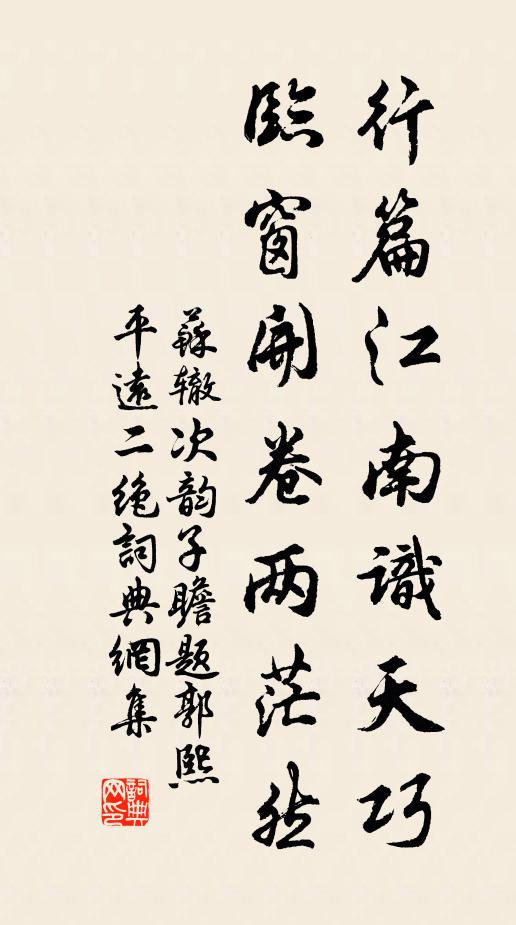 行篇江南識天巧
臨窗開卷兩茫然
蘇辙次韵子瞻题郭熙
平遠二絶詞典網集
詞典
网印